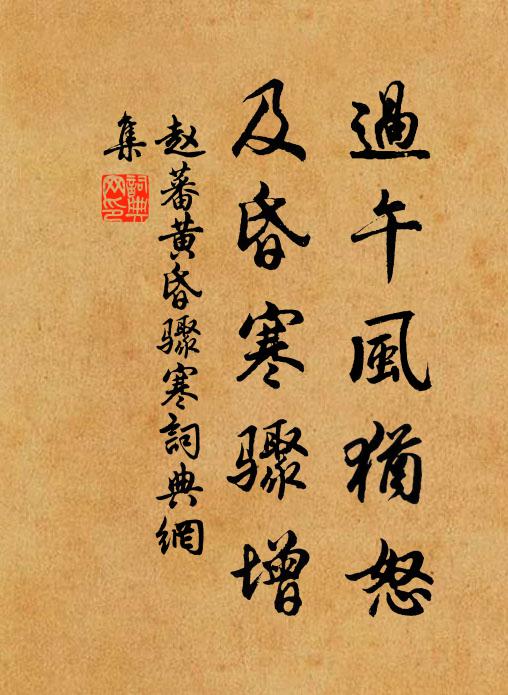 過午風猶怒
及昏寒驟增
赵蕃黄昏驟寒詞典網
集
詞典网印